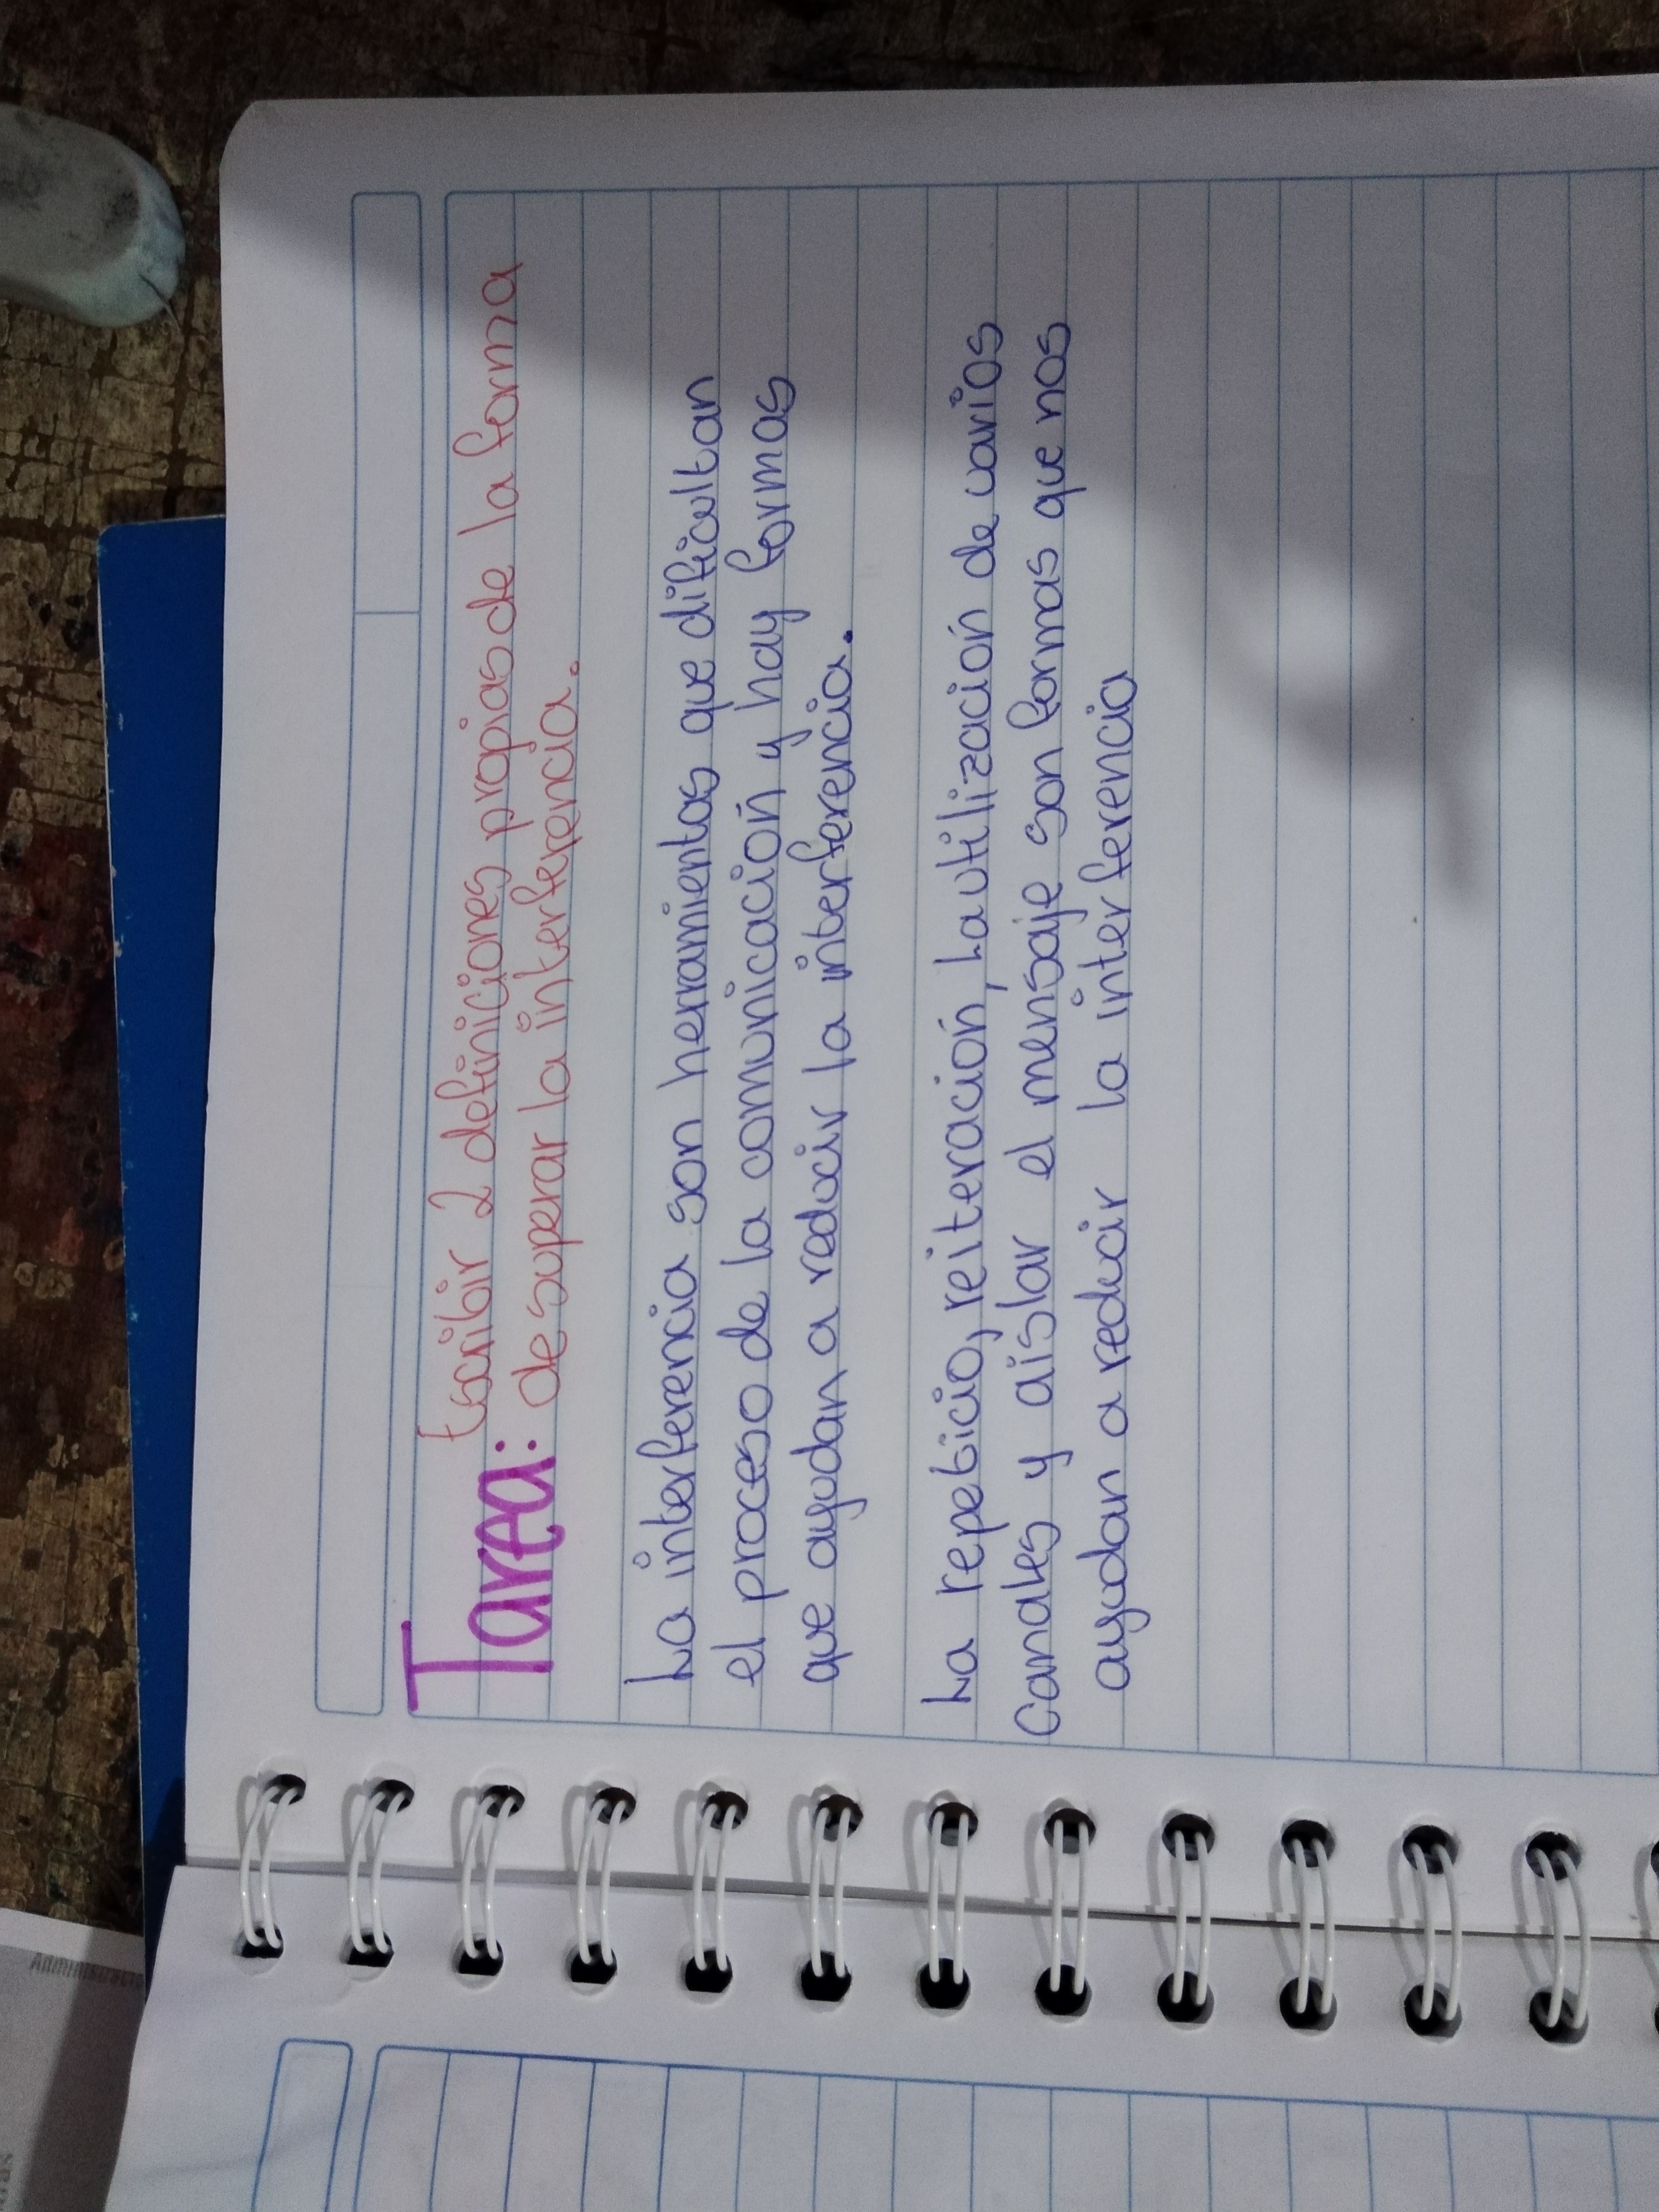 Tarea: Escribir 2 definiciones propias de la forma
de superar la interferencia.
La interferencia son herramientas que dificultan
el proceso de la comunicación y hay formas
que ayudan a reducir la interferencia.
La repeticio, reiteración, La utilización de varios
Canales y aislar el mensaje son formas que nos
ayudan a reducir la interferencia